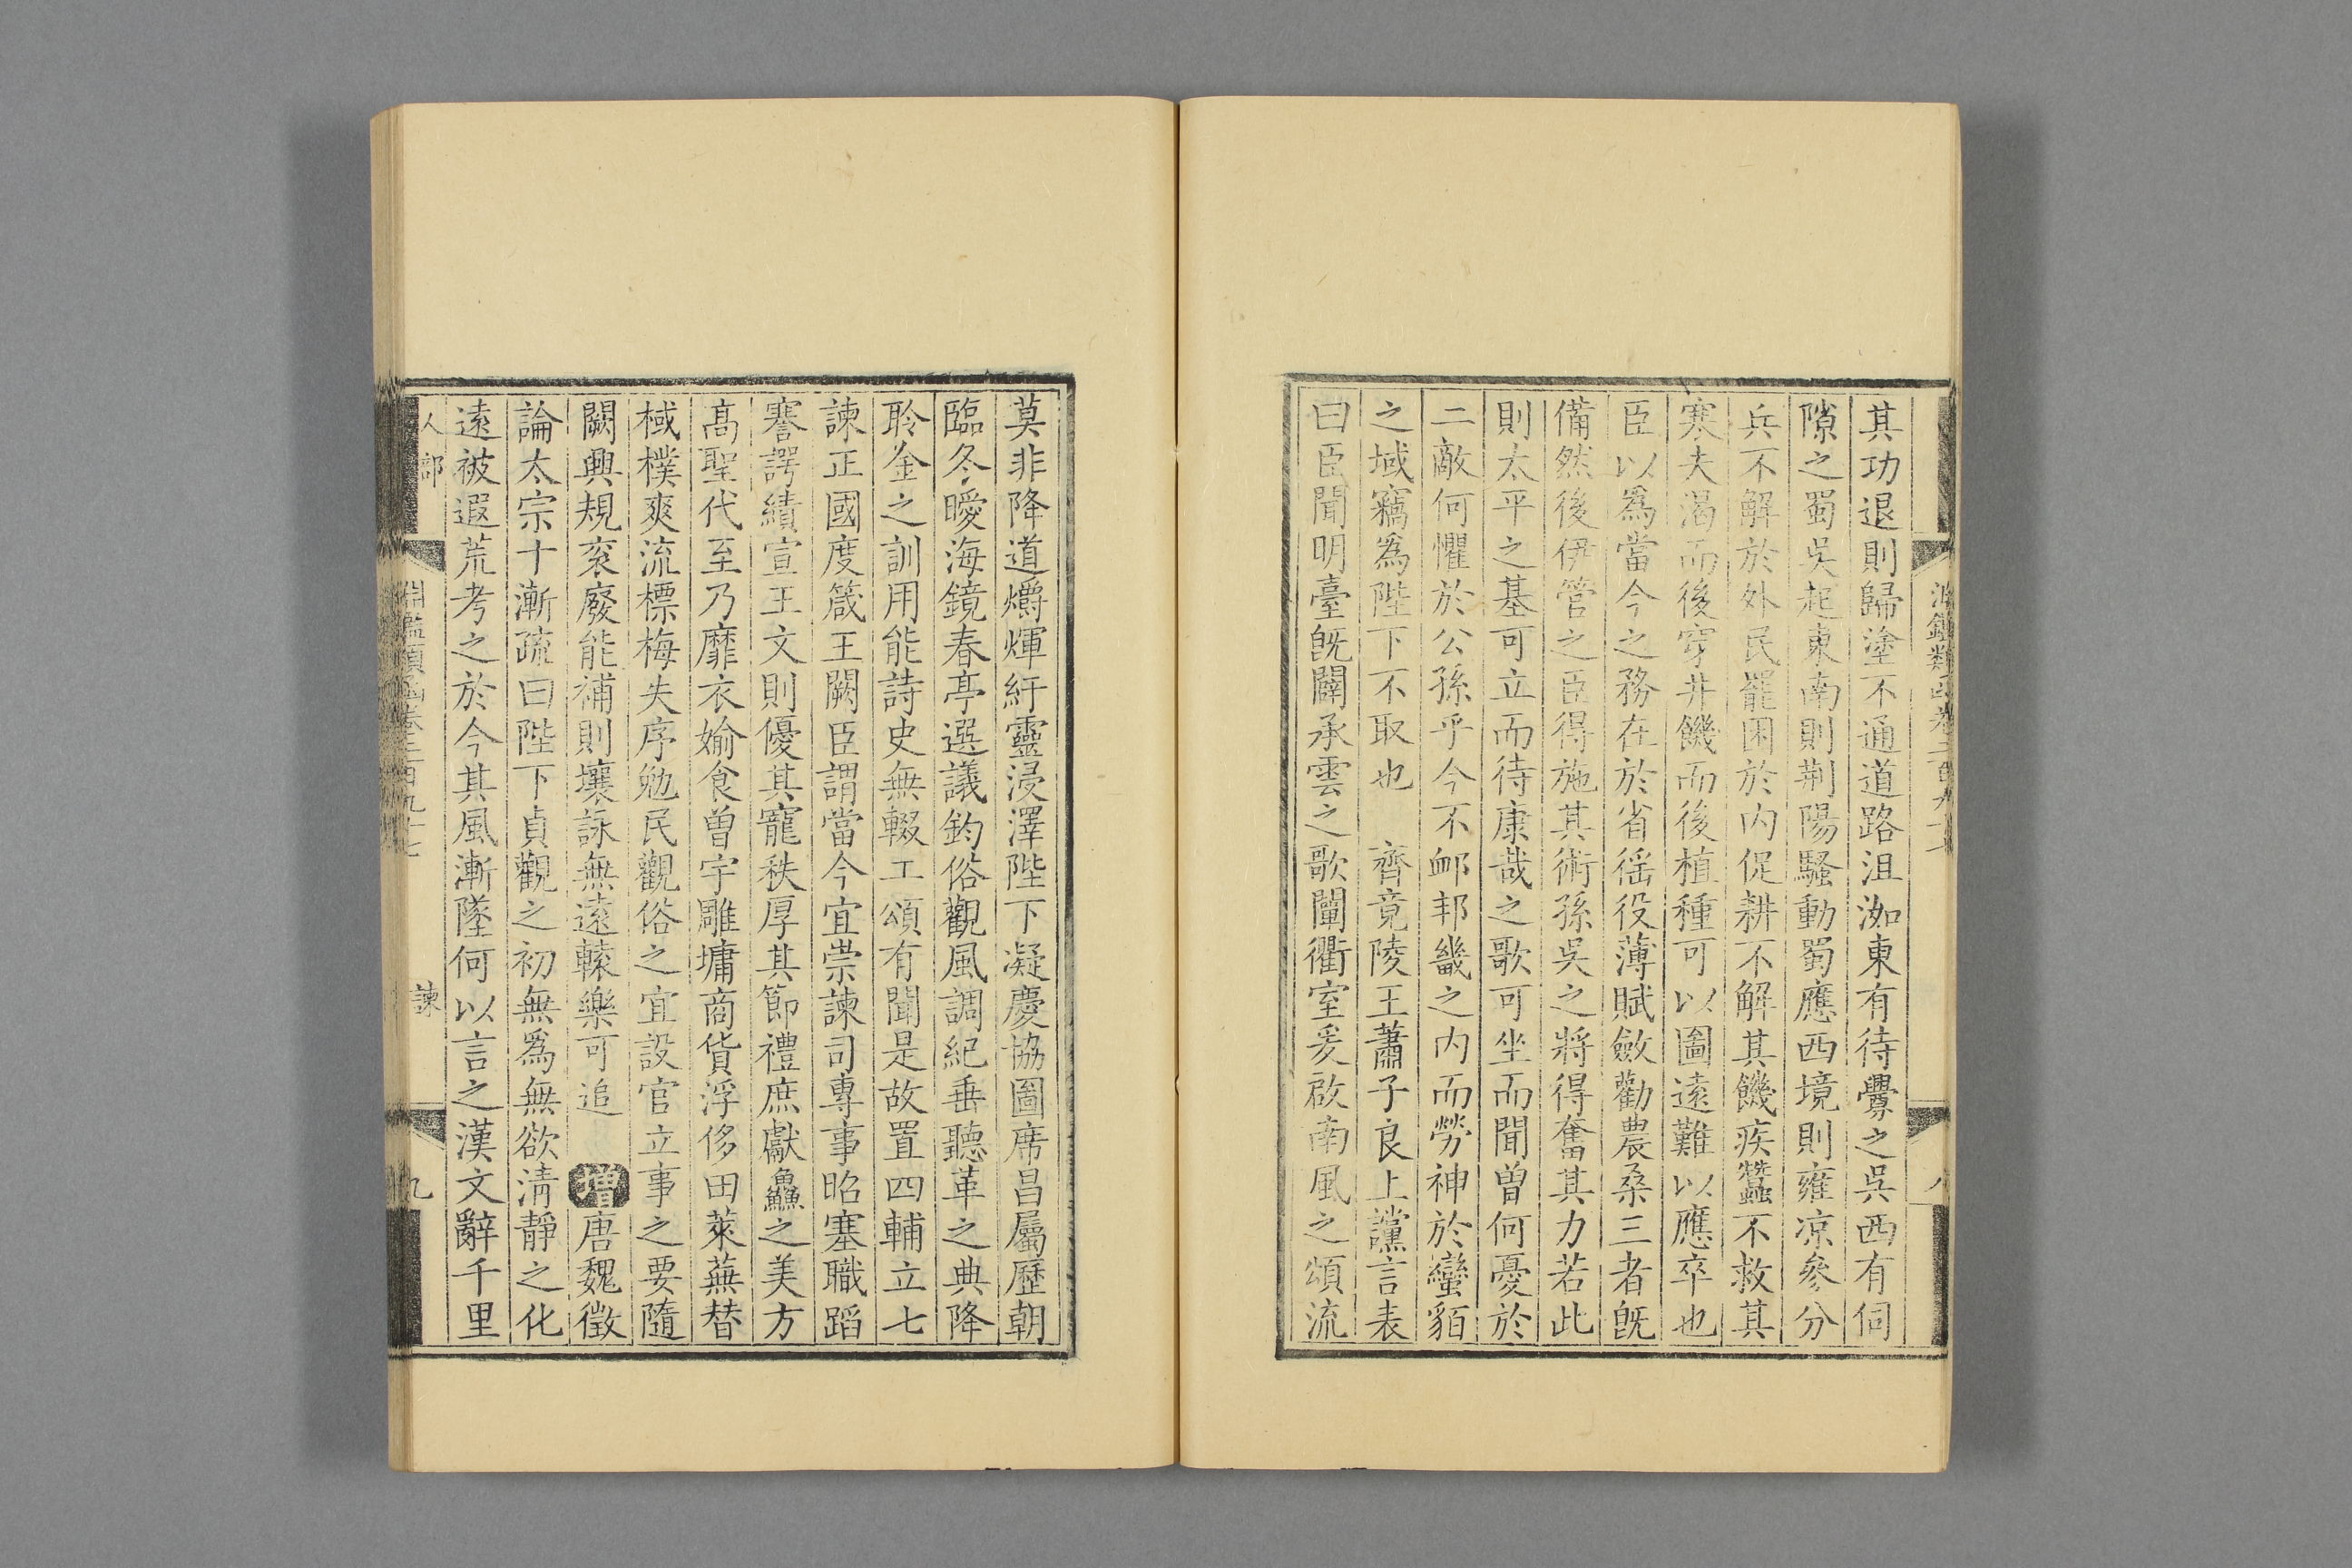 其功退則歸塗不通道路沮洳東有待釁之吳西有伺
隙之蜀吳起東南則荆陽騷動蜀應西境則雍凉參分
兵不解於外民罷困於内促耕不解其饑疾蠶不救其
寒夫渴而後穿井饑而後植種可以圖遠難以應卒也
臣以爲當今之務在於省徭役薄賦斂勸農桑三者旣
備然後伊管之臣得施其術孫吳之將得奮其力若此
則太平之基可立而待康哉之歌可坐而聞曽何憂於
二敵何懼於公孫乎今不䘏邦畿之内而勞神於蠻貊
之域竊爲陛下不取也 齊竟陵王蕭子良上讜言表
曰臣聞明臺旣闢承雲之歌闡衢室爰啟南風之頌流
莫非降道爝輝紆靈浸澤陛下凝慶協圖席昌屬歷朝
臨冬曖海鏡春亭選議釣俗觀風調紀垂聽革之典降
聆金之訓用能詩史無輟工頌有聞是故置四輔立七
諫正國度箴王闕臣謂當今宜崇諫司專事昭塞職蹈
謇諤績宣王文則優其寵秩厚其節禮庶獻鱻之美方
髙聖代至乃靡衣媮食曽宇雕墉商貨浮侈田萊蕪替
棫樸爽流標梅失序勉民觀俗之宜設官立事之要隨
闕興規衮廢能補則壤詠無遠轅樂可追 增唐魏徵
論太宗十漸疏曰陛下貞觀之初無爲無欲淸靜之化
遠被遐荒考之於今其風漸墜何以言之漢文辭千里
人部
淵鑑類函卷二百九十七
諫
九